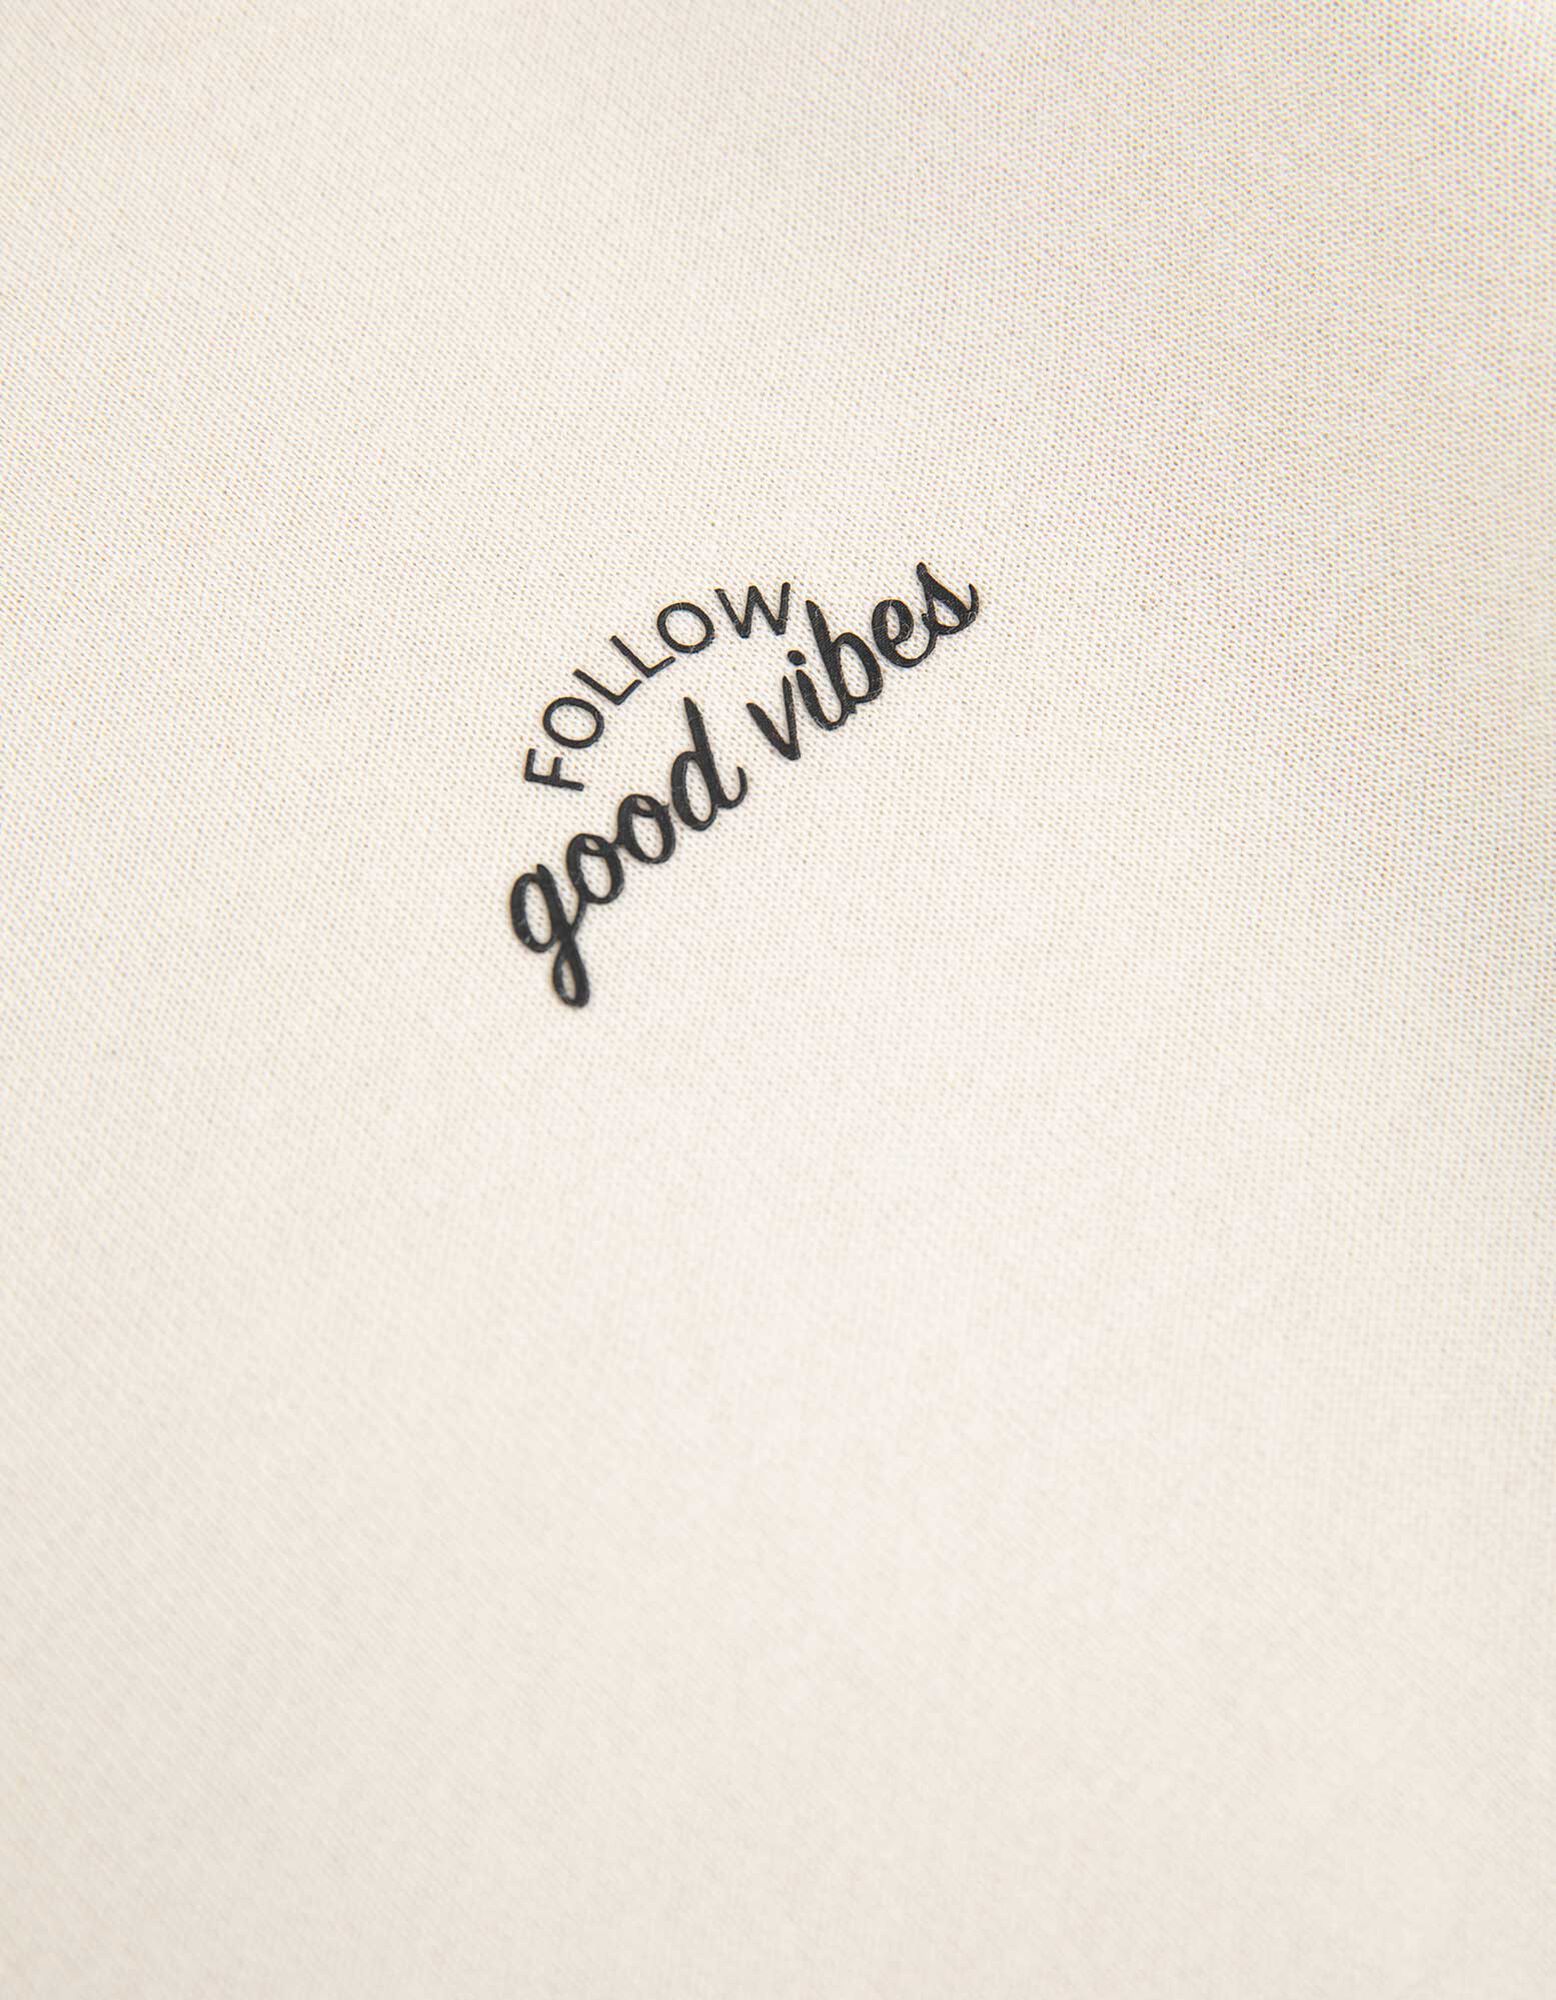 FOLLOW
good vibes